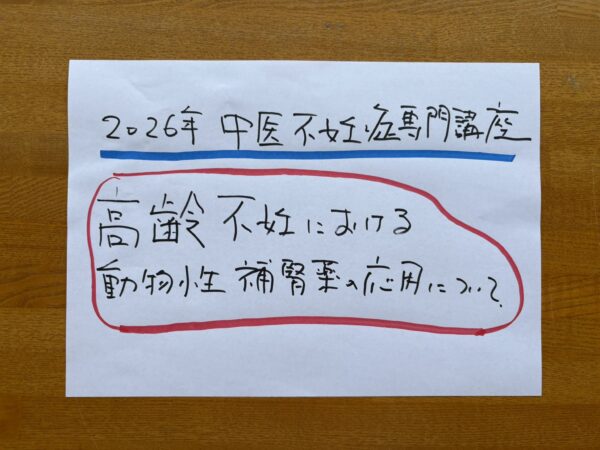 2026年 中医不妊症専門講座
高齢不妊における
動物性補腎薬の応用について